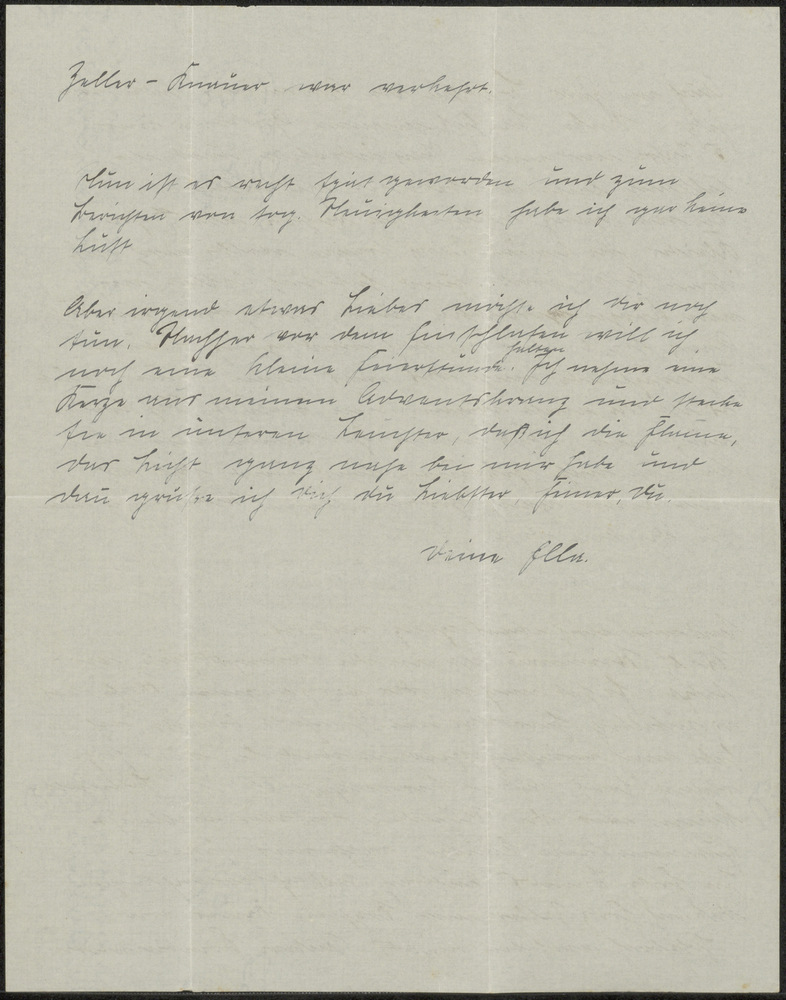 Zeller - Knauer war verkehrt.
Nun ist es recht spät geworden und zum
Berichten von sog. Neuigkeiten habe ich gar keine
Lust
Aber irgend etwas Liebes möchte ich dir noch
tun. Nachher vor dem Einschlafen will ich
noch eine kleine Feierstunde halten. Ich nehme eine
Kerze aus meinem Adventskranz und stecke
sie in unseren Leuchter, daß ich die Flamme,
das Licht ganz nahe bei mir habe und
dan grüße ich Dich, du Liebster, Du.
Deine Ella.